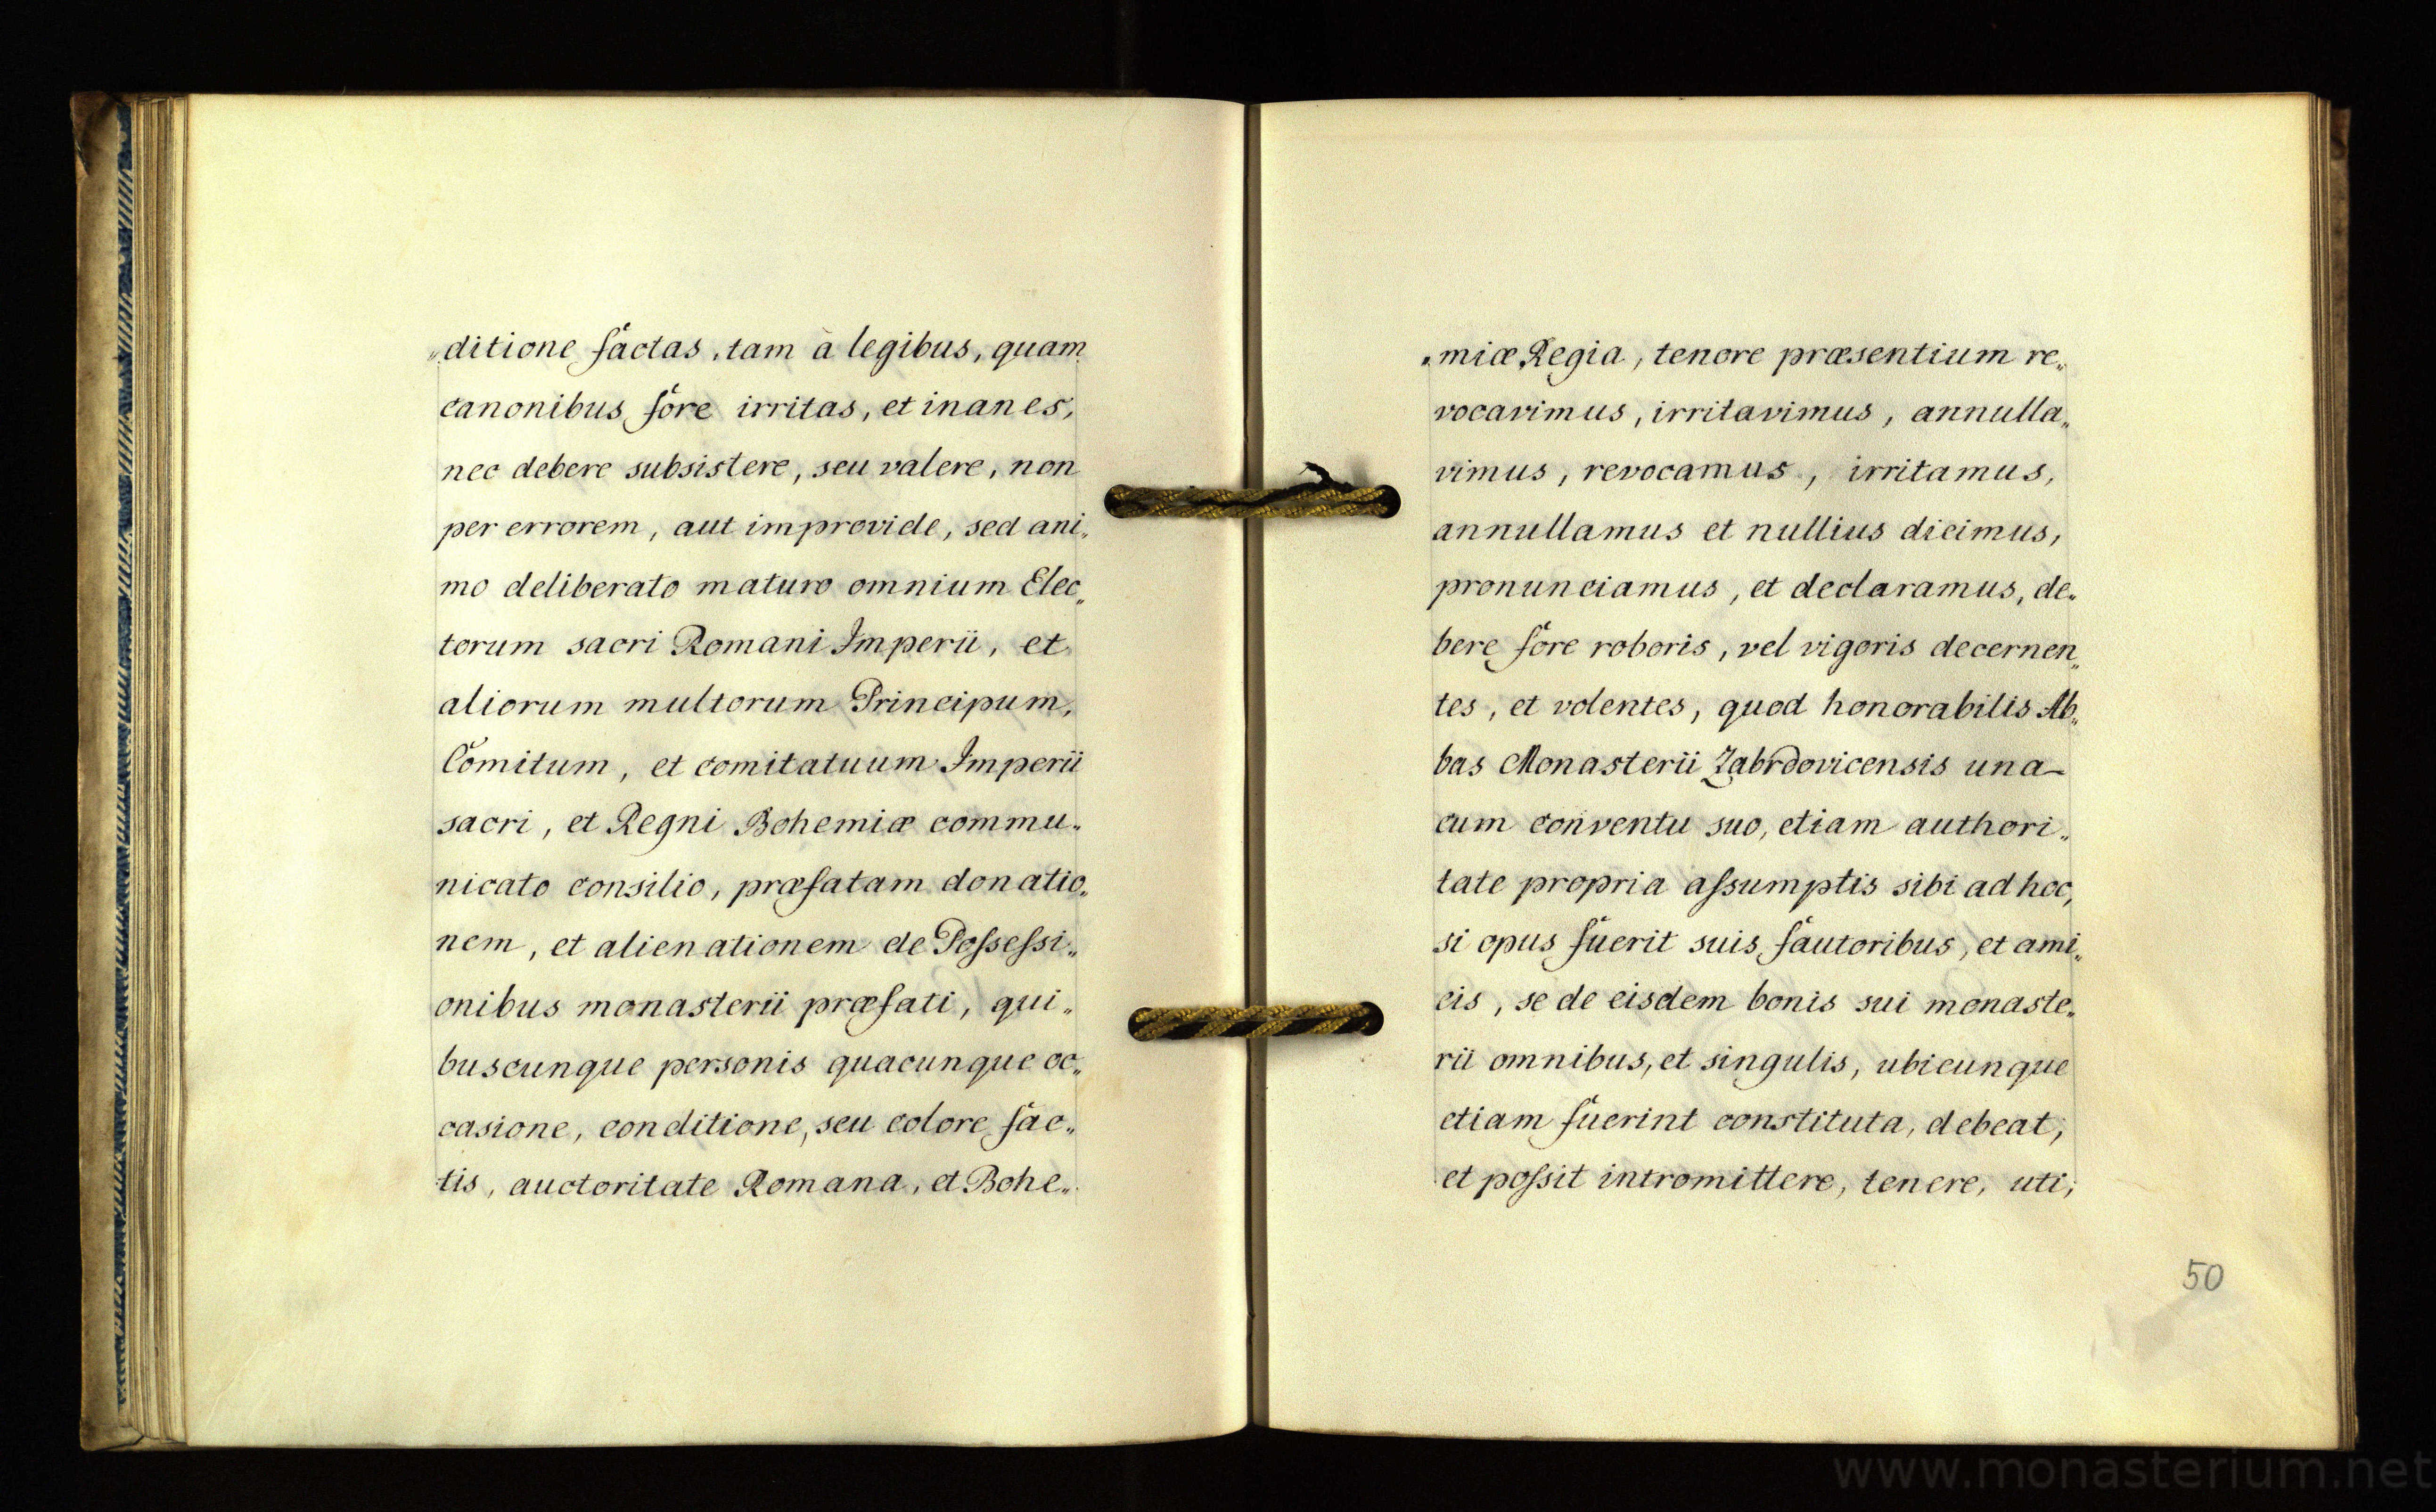 „ditione factas, tam à legibus, quam
canonibus fore irritas, et inanes,
nec debere subsistere, seu valere, non
per errorem, aut improvide, sed ani„
mo deliberato maturo omnium Elec„
torum sacri Romani Imperii, et
aliorum multorum Principum,
Comitum, et comitatuum Imperii
sacri, et Regni Bohemiæ commu„
nicato consilio, præfatam donatio„
nem, et alienationem de Poſseſsi„
onibus monasterii præfati, qui„
buscunque personis quacunque oc„
casione, conditione, seu colore fac„
tis, auctoritate Romana, et Bohe„
„miæ Regia, tenore præsentium re„
vocavimus, irritavimus, annulla„
vimus, revocamus, irritamus,
annullamus et nullius dicimus,
pronunciamus, et declaramus, de„
bere fore roboris, vel vigoris decernen„
tes, et volentes, quod honorabilis Ab„
bas Monasterii Zabrdovicensis una
cum conventu suo, etiam authori„
tate propria aſsumptis sibi ad hoc,
si opus fuerit suis fautoribus, et ami„
cis, se de eisdem bonis sui monaste„
rii omnibus, et singulis, ubicunque
etiam fuerint constituta, debeat,
et poſsit intromittere, tenere, uti,
50
www.monasterium.net